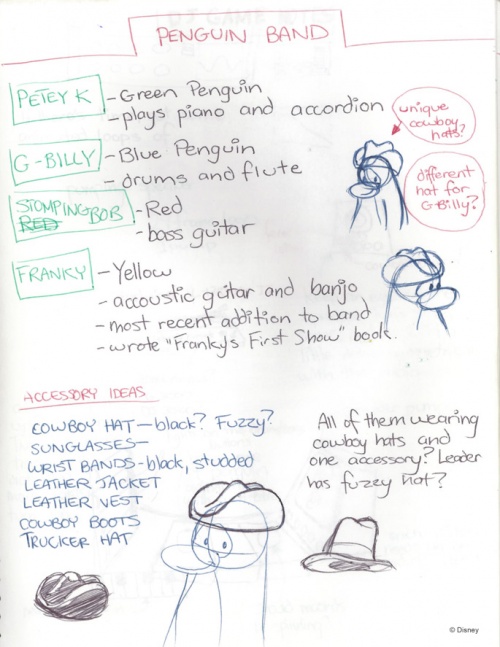 PENGUIN BAND
PETEY K
- Green Penguin
- plays piano and accordion
unique
cowboy
hats?
G-BILLY
- Blue Penguin
- drums and flute
different
hat for
G-Billy?
STOMPING BOB
RED
- Red
- bass guitar
FRANKY
- Yellow
- accoustic guitar and banjo
- most recent addition to band
- wrote "Franky's First Show" book.
ACCESSORY IDEAS
COWBOY HAT - black? Fuzzy?
SUNGLASSES -
WRIST BANDS - black, studded
LEATHER JACKET
LEATHER VEST
COWBOY BOOTS
TRUCKER HAT
All of them wearing
cowboy hats and
one accessory? Leader
has fuzzy hat?
© Disney